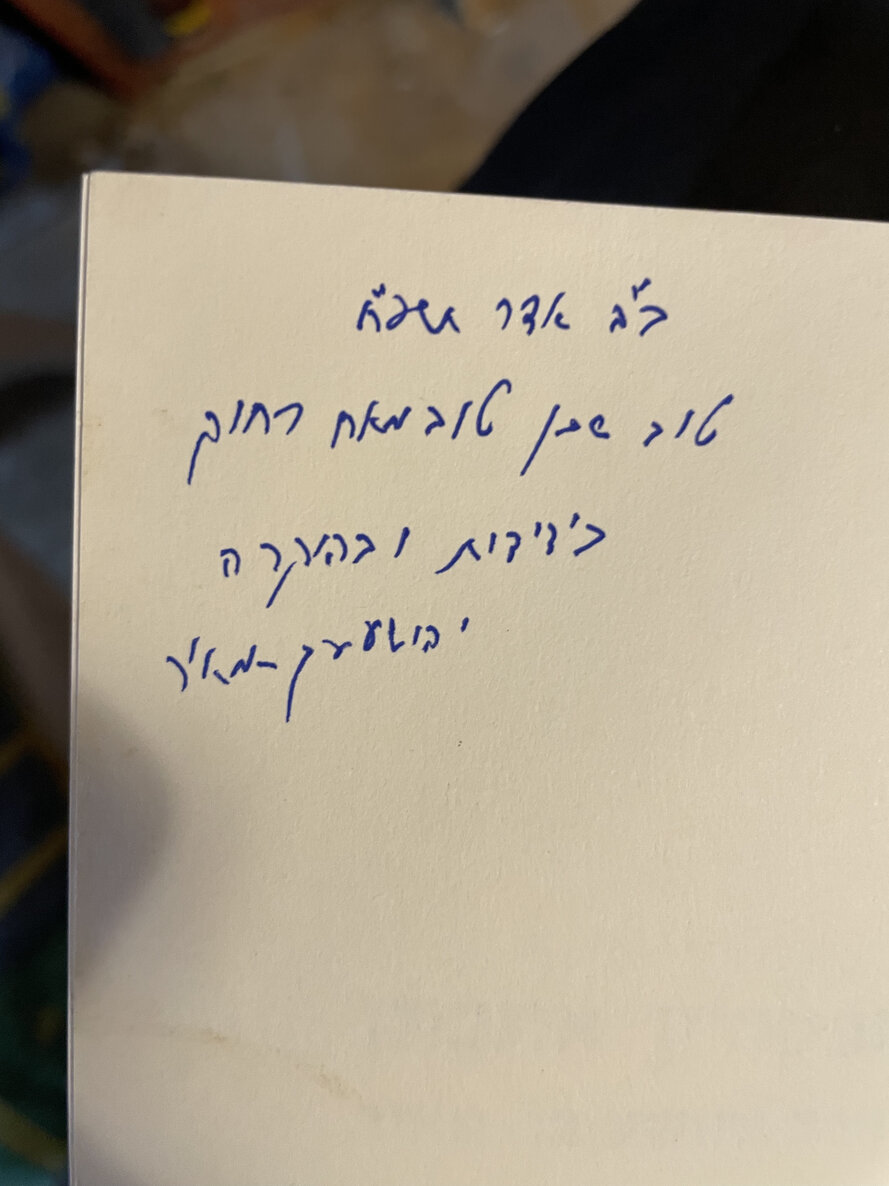 כ"ב אדר
טוב שכן טוב מאח רחוק
בידידות ובהוקרה
יהושע בן-מאיר